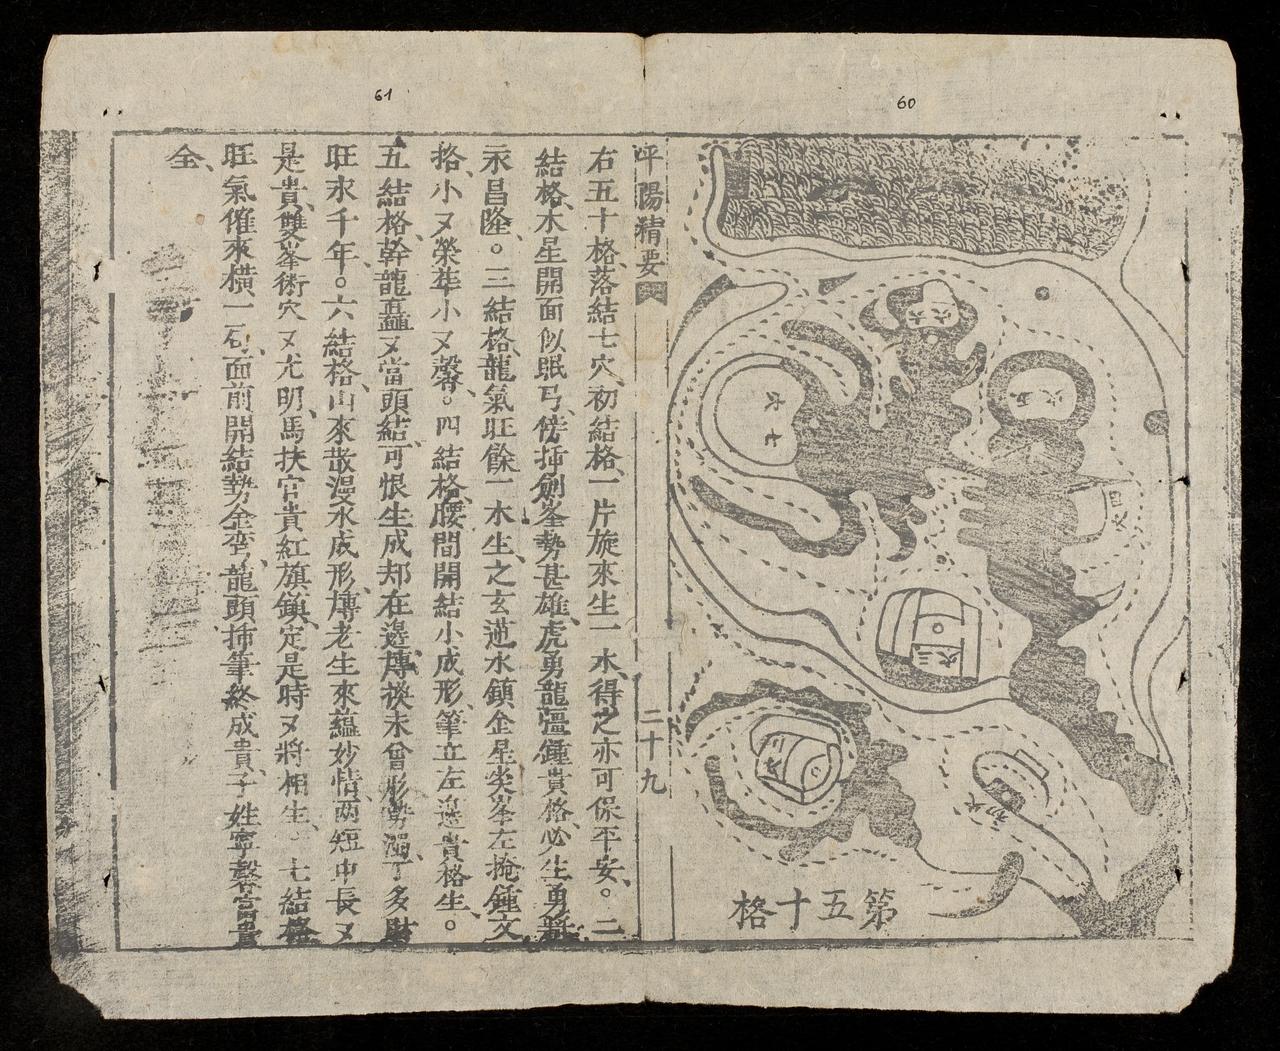 60
61
第五十格
初穴
穴三
穴四
穴五
穴六
穴七
平陽精要
二十九
右五十格落結七穴初結格一片旋來生一水得之亦可保平安。二
結格木星開面似眠弓傍揷劍峯勢甚雄虎勇龍彊鍾貴格必生勇
永昌隆。三結格龍氣旺餘一水生之玄逆水鎮金星尖峯左掩鍾文
格小又榮華小又馨。四結格腰間開結小成形筆立左邊貴格生。
五結格幹龍矗又當頭結可恨生成却在邊博換未曾形勢濁丁多財
旺永千年。六結格山來散漫水成形博老生來緼妙情两短中長又
是貴雙峯術穴又尤明馬扶官貴紅旗鎮定是時又將相生。七結格
旺氣催來橫一石面前開結勢金龍頭揷筆終成貴子姓寧馨富貴
全